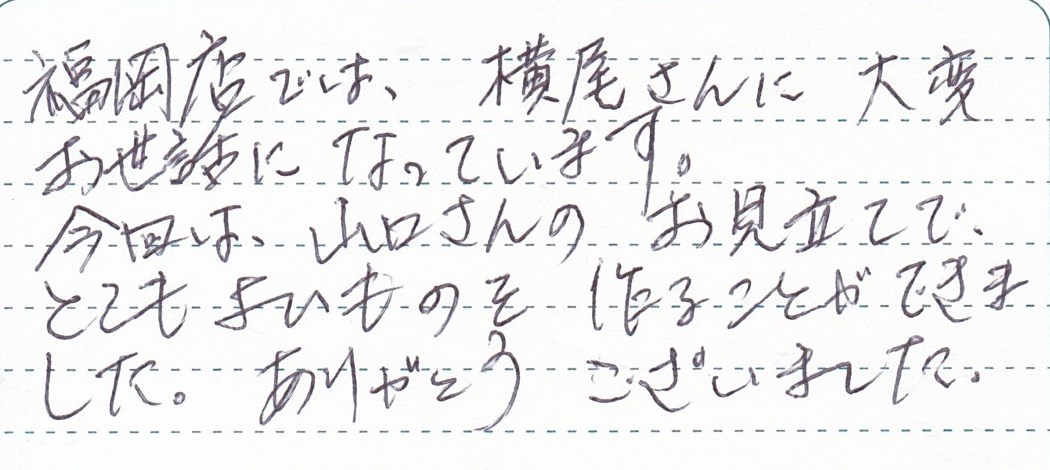 福岡店では、横尾さんに大変
お世話になっています。
今回は、山口さんのお見立てで、
とてもよいものを作ることができま
した。ありがとうございました。